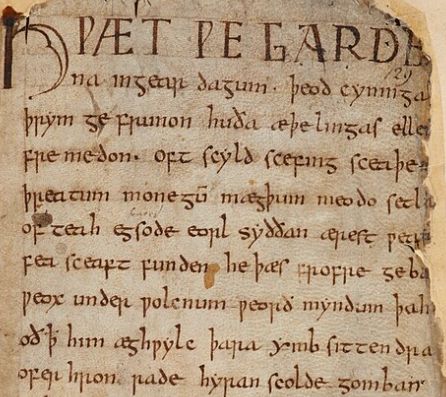 HǷÆT ǷE GARDE
na ingear dagum. þeod cyninga
þrym ge frunon huða æþelingas elle
fre medon. oft scyld scefing sceaþe
þreatum monegū mægþum meodo setla
of teah egsode eorl syððan ærest ƿear
fea sceaft funden he þæs frofre geba
ƿeox under ƿolcnum ƿeorð myndum þah
oð ꝥ him æghƿylc þara ymb sittendra
ofer hron rade hyran scolde gomban